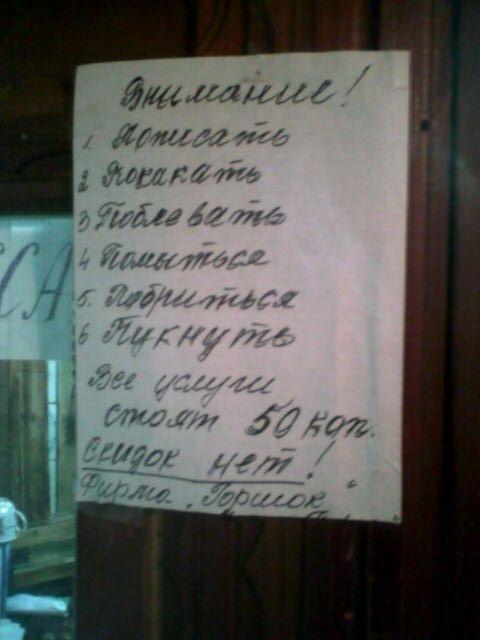 Внимание!
1. Пописать
2 Покакать
3 Поблевать
4 Помыться
5. Побриться
6 Пукнуть
Все услуги
стоят 50 коп.
Скидок нет!
Фирма „Горшок"
ССА